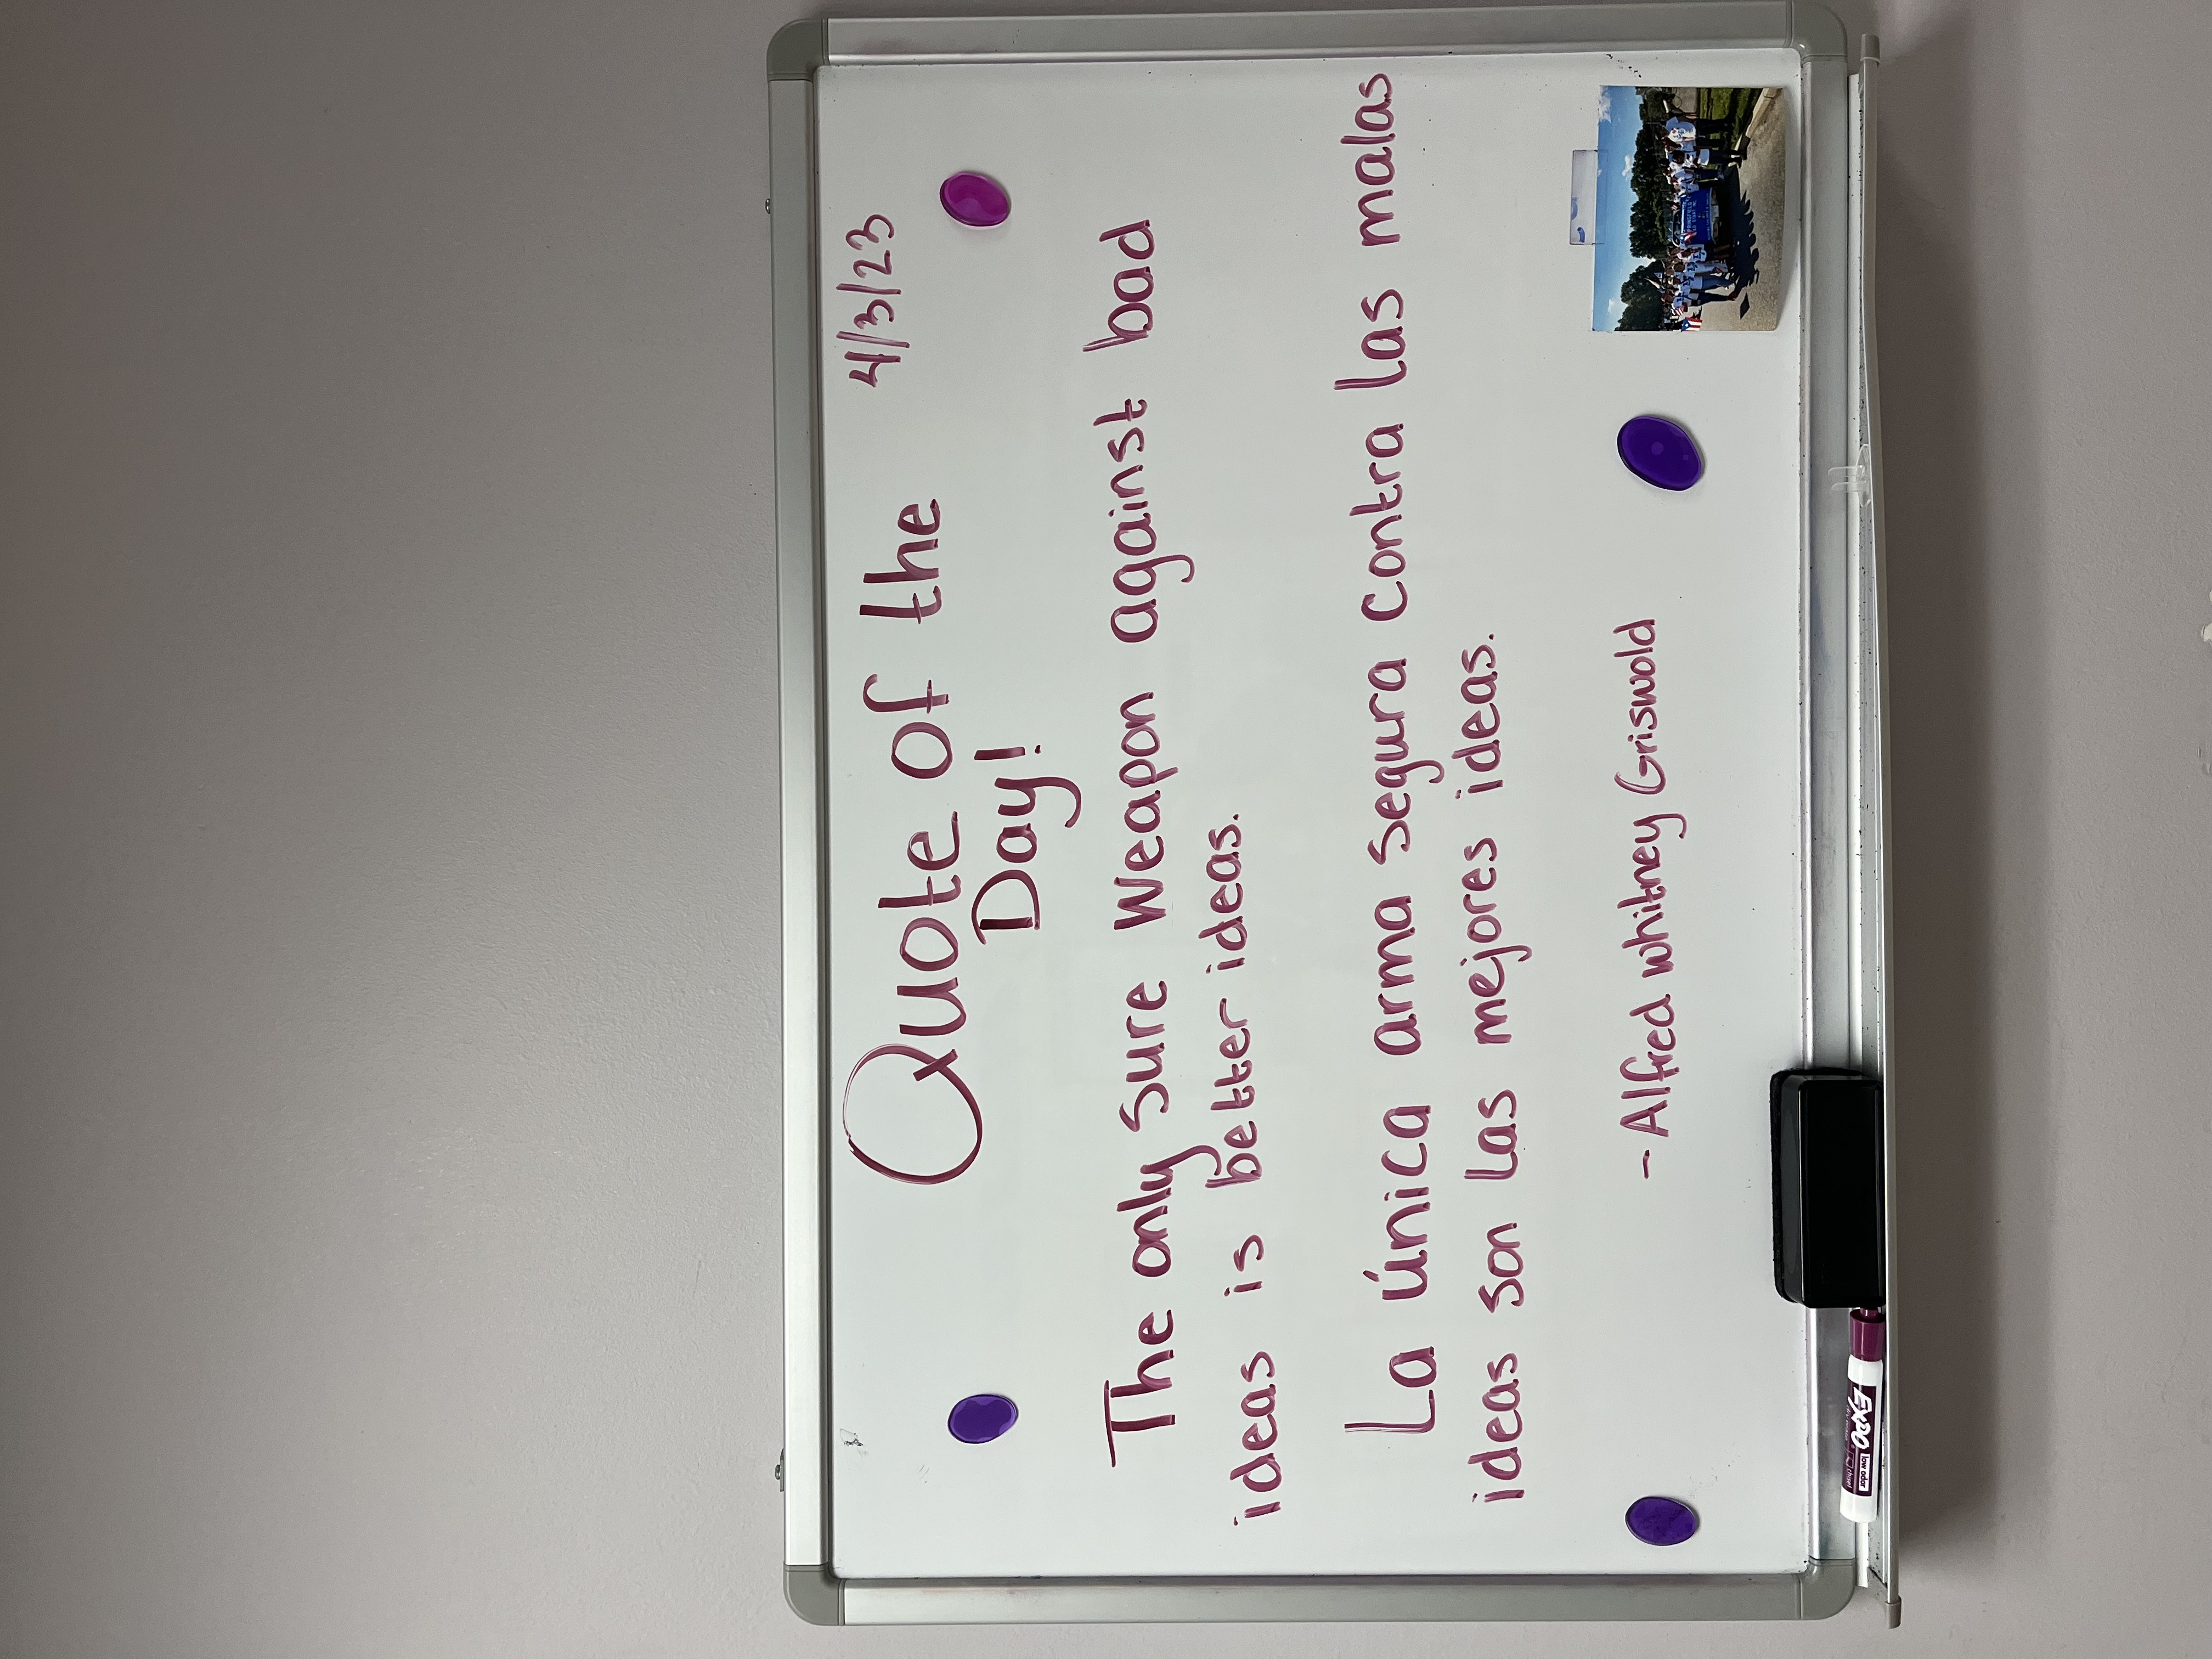 4/3/23
Quote of the
Day!
The only sure weapon against bad
ideas is better ideas.
La única arma segura contra las malas
ideas son las mejores ideas.
- Alfred whitney Griswold
EXPO
low odor